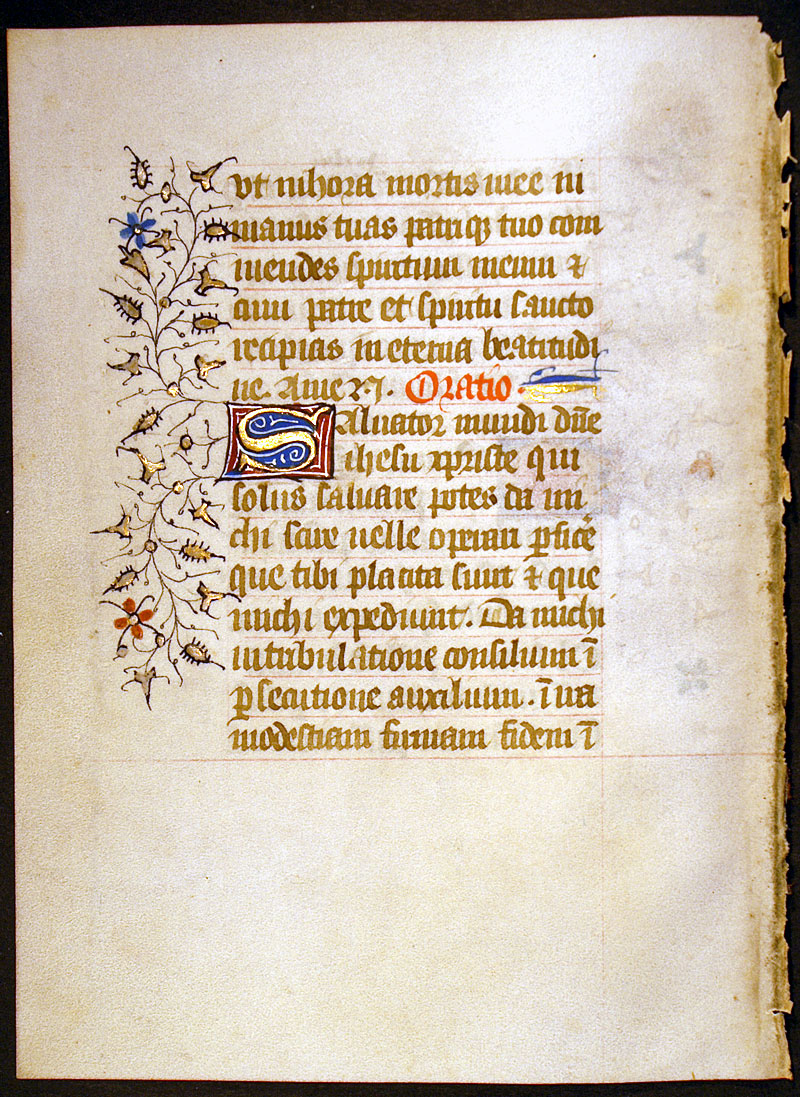 vt in hora mortis mee in
manus tuas patriq tuo com
mendes spiritum meum ⁊
cum patre et spiritu sancto
recipias in eterna beatitudi
ne. Aue M. Oratio.
Saluator mundi dn̄e
ihesu xpriste qui
solus saluare potes da mi
chi scire uelle operari ꝑficẽ
que tibi placita sunt ⁊ que
michi expediunt. Da michi
in tribulatione consilium ī
ꝑsecutione auxilium. ī ua
modestiam firmam fidem ī